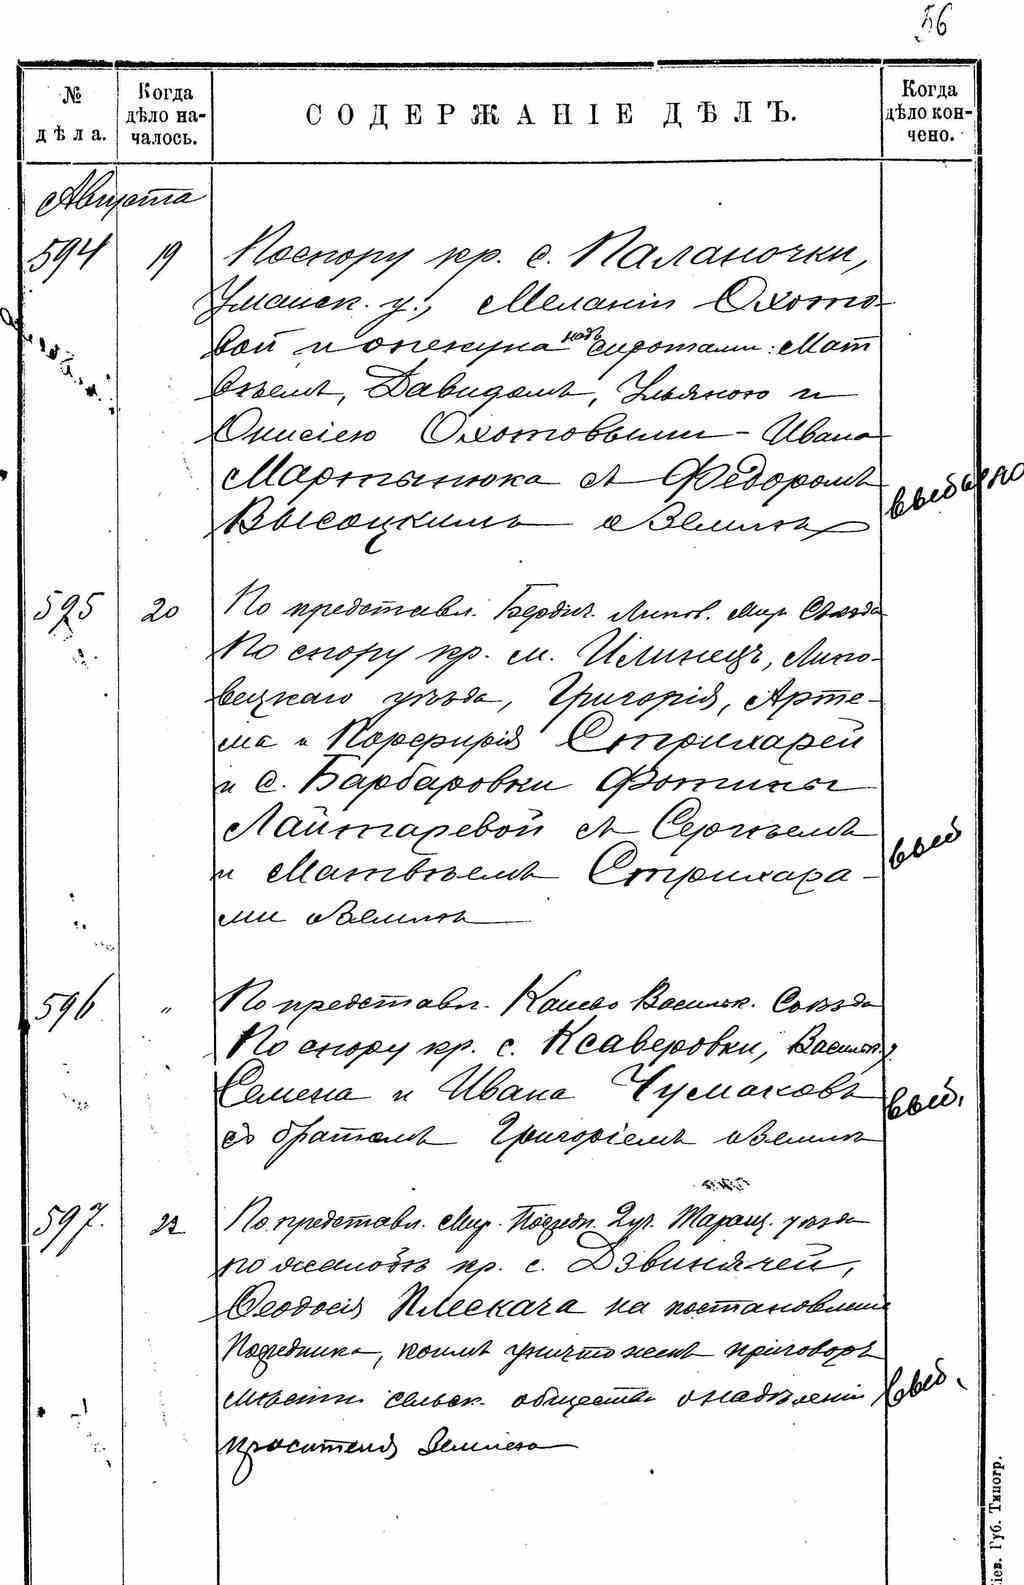 56
№ дѣла.
Когда дѣло началось.
СОДЕРЖАНІЕ ДѢЛЪ.
Когда дѣло кончено.
Августа
594 19 По спору кр. с. Паланочки,
Уманск. у., Меланіи Охото-
вой и опекуна надъ сиротами: Мат
вѣемъ, Давидомъ, Ульяною и
Онисіею Охотовыми - Ивана
Мартынюка съ Федоромъ
Высоцкимъ о землѣ
выбыло
595 20 По представл. Бердич. Липов. Мир. Съѣзда
По спору кр. м. Илинецъ, Липо-
вецкаго уѣзда, Григорія, Арте-
ма и Порфирія Стрихарей
и с. Барбаровки Фотины
Лайтаревой съ Сергѣемъ
и Матвѣемъ Стрихара-
ми о землѣ
выб
596 " По представл. Канево Васильк. Съѣзда
По спору кр. с. Ксаверовки, Васильк. у.
Семена и Ивана Чумаковъ
съ братомъ Григоріемъ о землѣ
выб.
597. 22 По представл. Мир. Посредн. 2 уч. Таращ. уѣзда
по жалобѣ кр. с. Дзвинячей,
Ѳеодосія Плескача на постановленіе
Посредника, коимъ уничтоженъ приговоръ
мѣстн. сельск. общества о надѣленіи
просителя землею
выб.
Кіев. Губ. Типогр.